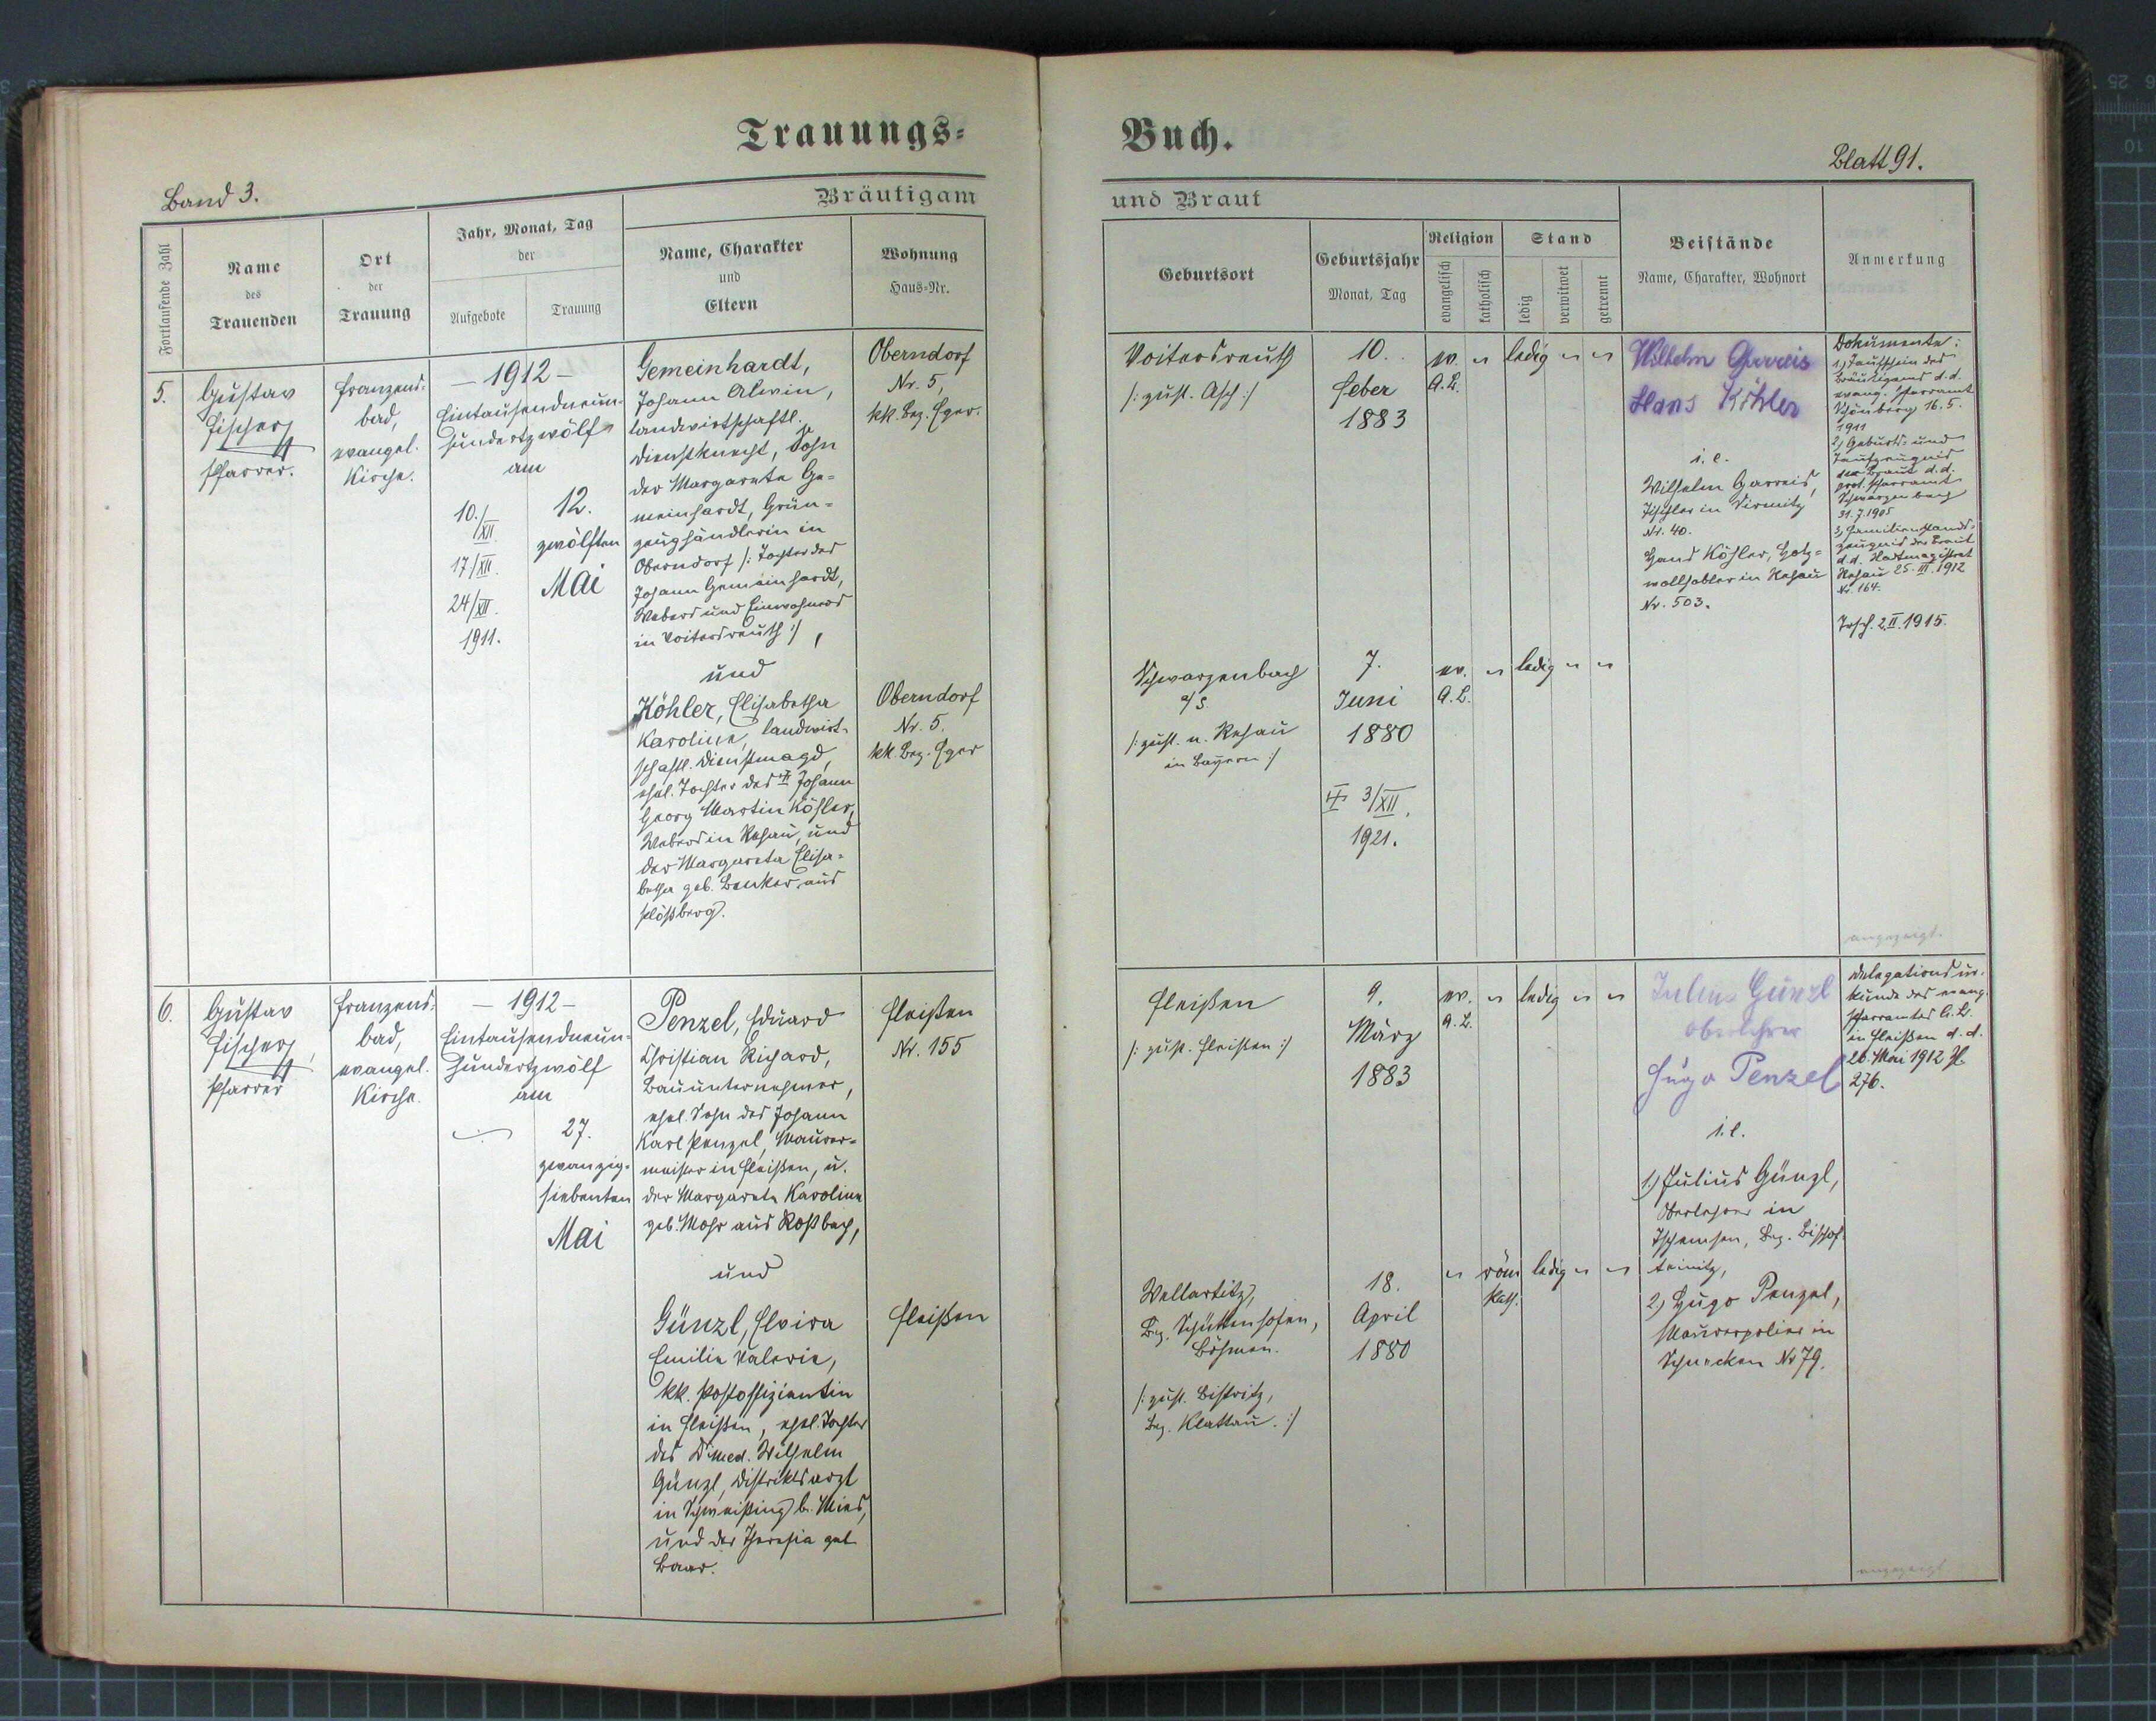 Trauungs=
Band 3.
Bräutigam
Fortlaufende Zahl
Name
des
Trauenden
Ort
der
Trauung
Jahr, Monat, Tag
der
Aufgebote
Trauung
Name, Charakter
und
Eltern
Wohnung
Haus=Nr.
5.
Gustav
Fischer,
Pfarrer.
Franzens-
bad,
evangel.
Kirche.
– 1912 –
Eintausendneun-
hundertzwölf
am
10./XII
17/XII.
24/XII.
1911.
12.
zwölften
Mai
Gemeinhardt,
Johann Alwin,
landwirtschaftl.
Dienstknecht, Sohn
der Margareta Ge=
meinhardt, Grün=
zeughändlerin in
Oberndorf /: Tochter des
Johann Gemeinhardt,
Webers und Einwohners
in Voitersreuth :/,
und
Köhler, Elisabetha
Karoline, landwirt-
schaftl. Dienstmagd,
ehel. Tochter des Johann
Georg Martin Köhler,
Webers in Rehau, und
der Margareta Elisa=
betha geb. Benker, aus
Plößberg.
Oberndorf
Nr. 5,
kk. Bez. Eger.
Oberndorf
Nr. 5.
kk. Bez. Eger
6.
Gustav
Fischer,
Pfarrer
Franzens-
bad,
evangel.
Kirche.
– 1912 –
Eintausendneun-
hundertzwölf
am
27.
zwanzig-
siebenten
Mai
Penzel, Eduard
Christian Richard,
Bauunternehmer,
ehel. Sohn des Johann
Karl Penzel, Maurer=
meister in Fleißen, u.
der Margareta Karoline
geb. Mohr aus Roßbach,
und
Günzl, Elvira
Emilie Valerie,
kk. Postoffiziantin
in Fleißen, ehel. Tochter
des Dr med. Wilhelm
Günzl, Distriktsarzt
in Schweißing b. Mies,
und der Theresia geb.
Baar.
Fleißen
Nr. 155
Fleißen
Buch.
Blatt 91.
und Braut
Geburtsort
Geburtsjahr
Monat, Tag
Religion
evangelisch
katholisch
Stand
ledig
verwitwet
getrennt
Beistände
Name, Charakter, Wohnort
Anmerkung
Voitersreuth
/: zust. Asch :/
10.
Feber
1883
ev.
A.B.
ledig
Wilhelm Garreis
Hans Köhler
i. e.
Wilhelm Garreis,
Tischler in
Nr. 40.
Hans Köhler, Holz=
wollhobler in Rehau
Nr. 503.
Dokumente:
1.) Taufschein des
Bräutigams d.d.
evang. Pfarramt
Schönberg 16. 5.
1911
2.) Geburts- und
Taufzeugnis
der Braut d.d.
prot. Pfarramt
Schwarzenbach
31. 7. 1905
3.) Familienstands-
zeugnis der Braut
d.d. Stadtmagistrat
Rehau 25. III. 1912
Nr. 164.
2. II. 1915.
Schwarzenbach
a/S.
/: zust. n. Rehau
in Bayern :/
7.
Juni
1880
3/XII.
1921.
ev.
A.B.
ledig
angezeigt.
Fleißen
/: zust. Fleißen :/
9.
März
1883
ev.
A.B.
ledig
Julius Günzl
Oberlehrer
Hugo Penzel
i. e.
1.) Julius Günzl,
Oberlehrer in
Bez. Bischof-
teinitz,
2.) Hugo Penzel,
Maurerpolier in
Schnecken Nr 79.
Delegationsur-
kunde des evang.
Pfarramtes A.B.
in Fleißen d.d.
26. Mai 1912 Zl.
276.
Wellartitz,
Bez. Schüttenhofen,
Böhmen.
/: zust. Bistritz,
Bez. Klattau. :/
18.
April
1880
röm
kath.
ledig
angezeigt